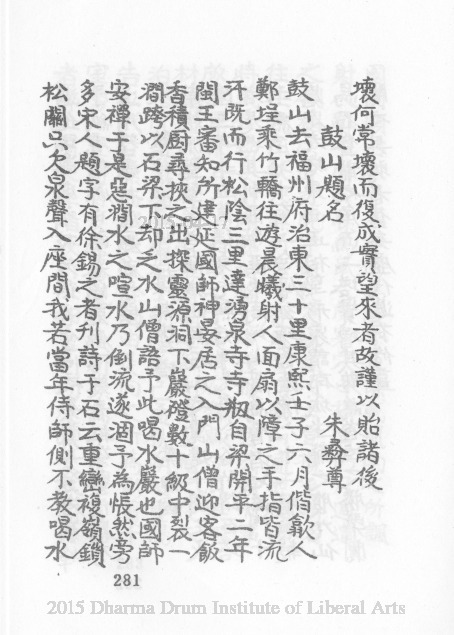 壞何常壞而復成實望來者故謹以貽諸後
鼓山題名　朱彝尊
鼓山去福州府治東三十里康熙壬子六月偕歙人
鄭埕乘竹轎往遊晨曦射人面扇以障之手指皆流
汗既而行松陰三里達湧泉寺寺剏自梁開平二年
閩王審知所建延國師神晏居之入門山僧迎客飯
香積厨尋挾之出探靈源洞下巖磴數十級中裂一
澗跨以石梁下却之水山僧語予此喝水巖也國師
安禪于是惡澗水之喧水乃倒流遂涸予為悵然旁
多宋人題字有徐錫之者刋詩于石云重巒複嶺鎖
松關只欠泉聲入座間我若當年侍師側不教喝水
281
2015 Dharma Drum Institute of Liberal Arts